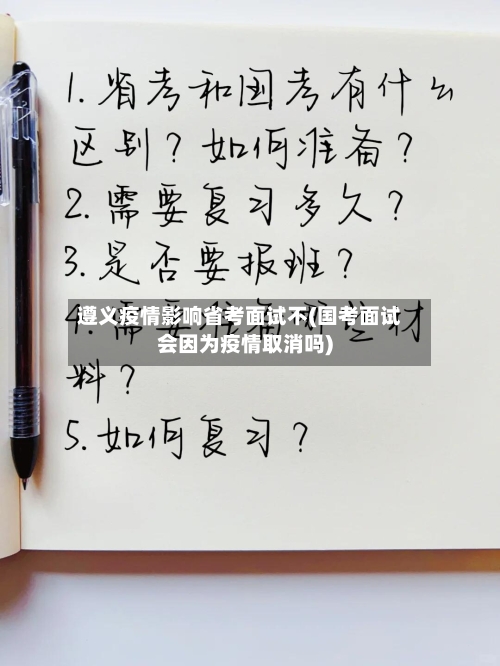 1.省考和国考有什么
区别？如何准备？
2.需要复习多久？
3.是否要报班？
遵义疫情影响省考面试不(国考面试
会因为疫情取消吗)
4.需要准备哪些材
料？
5.如何复习？